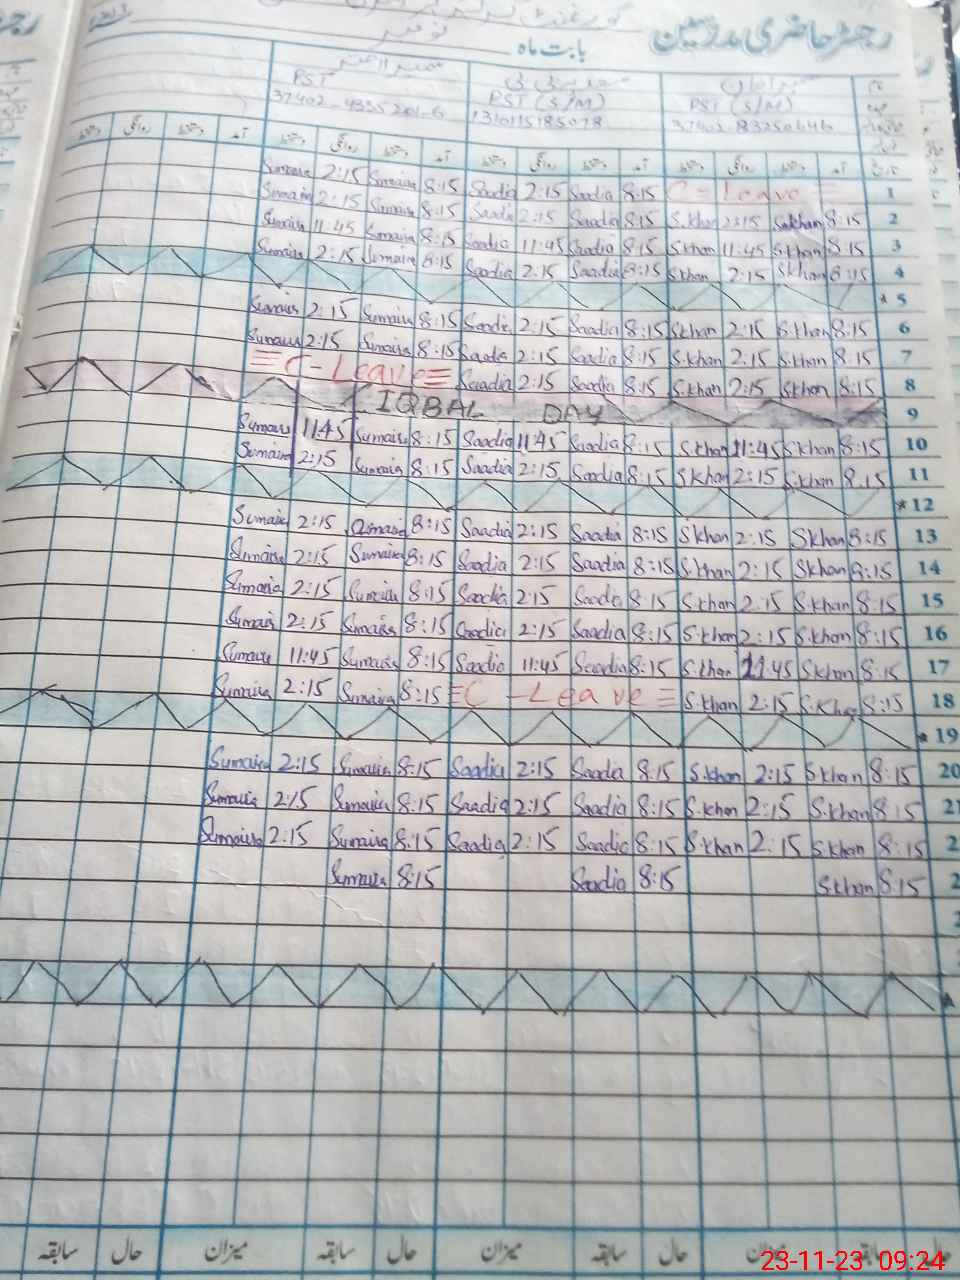 رجسٹر حاضری مدرسین
بابت ماہ نومبر
PST PST (S/M) PST (S/M)
آمد دستخط روانگی دستخط آمد دستخط روانگی دستخط آمد دستخط روانگی دستخط آمد دستخط روانگی دستخط
Sumaira 2:15 Sumaira 8:15 Saadia 2:15 Saadia 8:15 C-Leave 1
Sumaira 2:15 Sumaira 8:15 Saadia 2:15 Saadia 8:15 S.khan 2:15 S.khan 8:15 2
Sumaira 11:45 Sumaira 8:15 Saadia 11:45 Saadia 8:15 S.khan 11:45 S.khan 8:15 3
Sumaira 2:15 Sumaira 8:15 Saadia 2:15 Saadia 8:15 S.khan 2:15 S.khan 8:15 4
* 5
Sumaira 2:15 Sumaira 8:15 Saadia 2:15 Saadia 8:15 S.khan 2:15 S.khan 8:15 6
Sumaira 2:15 Sumaira 8:15 Saadia 2:15 Saadia 8:15 S.khan 2:15 S.khan 8:15 7
C-Leave Saadia 2:15 Saadia 8:15 S.khan 2:15 S.khan 8:15 8
IQBAL DAY 9
Sumaira 11:45 Sumaira 8:15 Saadia 11:45 Saadia 8:15 S.khan 11:45 S.khan 8:15 10
Sumaira 2:15 Sumaira 8:15 Saadia 2:15 Saadia 8:15 S.khan 2:15 S.khan 8:15 11
* 12
Sumaira 2:15 Sumaira 8:15 Saadia 2:15 Saadia 8:15 S.khan 2:15 S.khan 8:15 13
Sumaira 2:15 Sumaira 8:15 Saadia 2:15 Saadia 8:15 S.khan 2:15 S.khan 8:15 14
Sumaira 2:15 Sumaira 8:15 Saadia 2:15 Saadia 8:15 S.khan 2:15 S.khan 8:15 15
Sumaira 2:15 Sumaira 8:15 Saadia 2:15 Saadia 8:15 S.khan 2:15 S.khan 8:15 16
Sumaira 11:45 Sumaira 8:15 Saadia 11:45 Saadia 8:15 S.khan 11:45 S.khan 8:15 17
Sumaira 2:15 Sumaira 8:15 C-Leave S.khan 2:15 S.khan 8:15 18
* 19
Sumaira 2:15 Sumaira 8:15 Saadia 2:15 Saadia 8:15 S.khan 2:15 S.khan 8:15 20
Sumaira 2:15 Sumaira 8:15 Saadia 2:15 Saadia 8:15 S.khan 2:15 S.khan 8:15 21
Sumaira 2:15 Sumaira 8:15 Saadia 2:15 Saadia 8:15 S.khan 2:15 S.khan 8:15 2
Sumaira 8:15 Saadia 8:15 S.khan 8:15 2
سابقہ حال میزان سابقہ حال میزان سابقہ حال میزان سابقہ حال
23-11-23 09:24